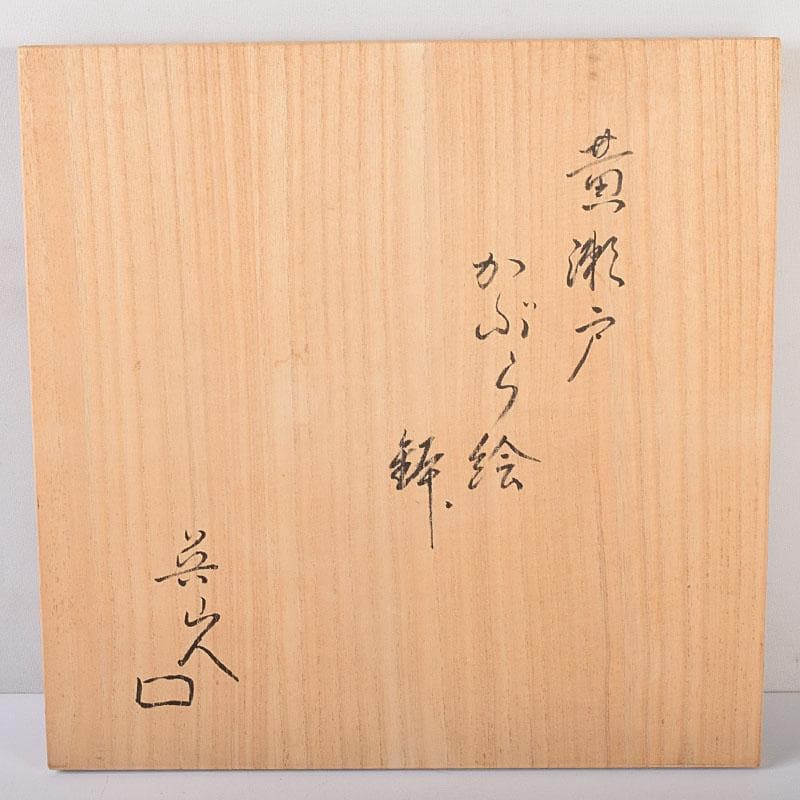 黄瀬戸
かぶら絵
鉢
英山人